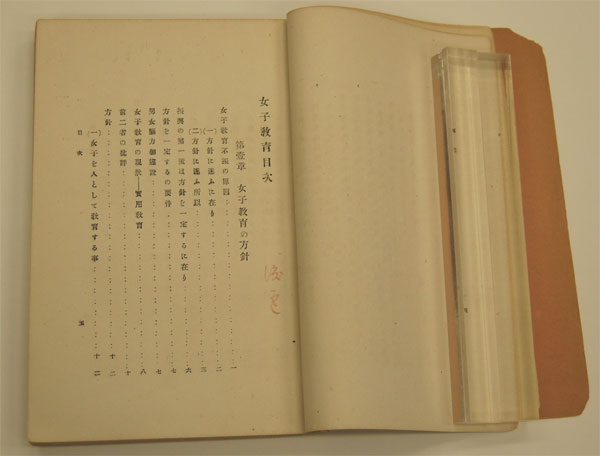 女子教育目次
第壹章 女子教育の方針
女子教育不振の原因……………一
(一)方針に迷ふに在り……………二
(二)方針に迷ふ所以……………三
振興の第一策は方針を一定するに在り……………六
方針を一定するの要件……………七
男女腦力相違說……………七
女子教育の現狀―實用教育……………八
前二者の批評……………十
方針……………十二
(一)女子を人として教育する事……………十二
目次